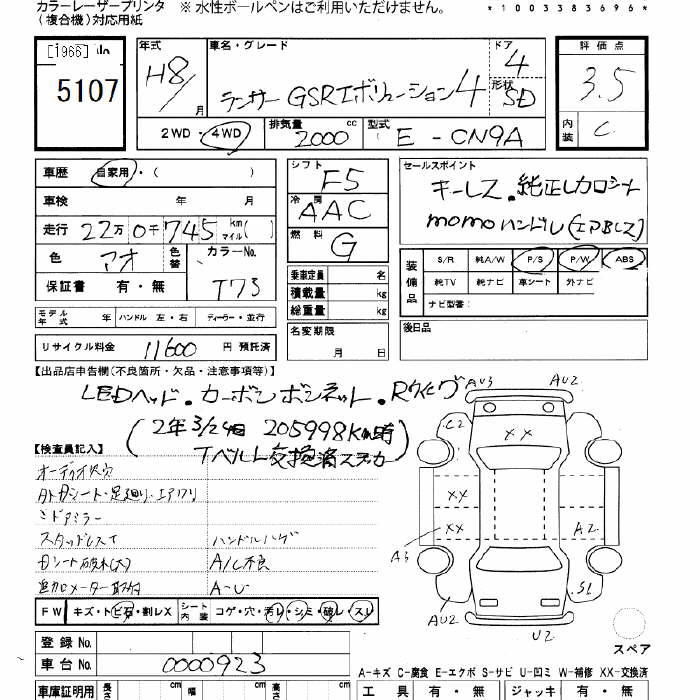 カラーレーザープリンタ ※ 水性ボールペンはご利用いただけません。 *1003383696*
(複合機)対応用紙
[1966]
5107
年式 H8/ 月
車名・グレード ランサー GSRエボリューション4
ドア 4
形状 SD
評価点 3.5
内装 C
2WD・4WD 排気量 2000 cc 型式 E-CN9A
車歴 自家用・( )
車検 年 月
走行 22万0千745 km マイル( )
色 アオ 色替 カラーNo. T73
保証書 有・無
シフト F5
冷房 AAC
燃料 G
乗車定員 名
積載量 kg
総重量 kg
名変期限 月 日
セールスポイント
キーレス.純正レカロシート
momoハンドル(エアBレス)
装備品 S/R 純A/W P/S P/W ABS
純TV 純ナビ 革シート 外ナビ
ナビ型番:
後日品
モデル年式 年 ハンドル 左・右 ディーラー・並行
リサイクル料金 11600 円 預託済
【出品店申告欄(不良箇所・欠品・注意事項等)】
LEDヘッド.カーボンボンネット.Rウイング
(2年3/24日 205998Km時
Tベルト交換済ステッカー
【検査員記入】
ミドアミラー
スタッドレスT ハンドルハゲ
シート破れ(大) A/C不良
追加メーター取付 A-U
FW キズ・トビ石・割レX シート内装 コゲ・穴・汚レ・シミ・破レ・スレ
登録No.
車台No. 0000923
車庫証明用 長さ cm 幅 cm 高さ cm
AU3 AU2
C2 XX
XX
XX
A3 A2
S1
AU2 U2
スペア
A-キズ C-腐食 E-エクボ S-サビ U-凹ミ W-補修 XX-交換済
工具 有・無 ジャッキ 有・無